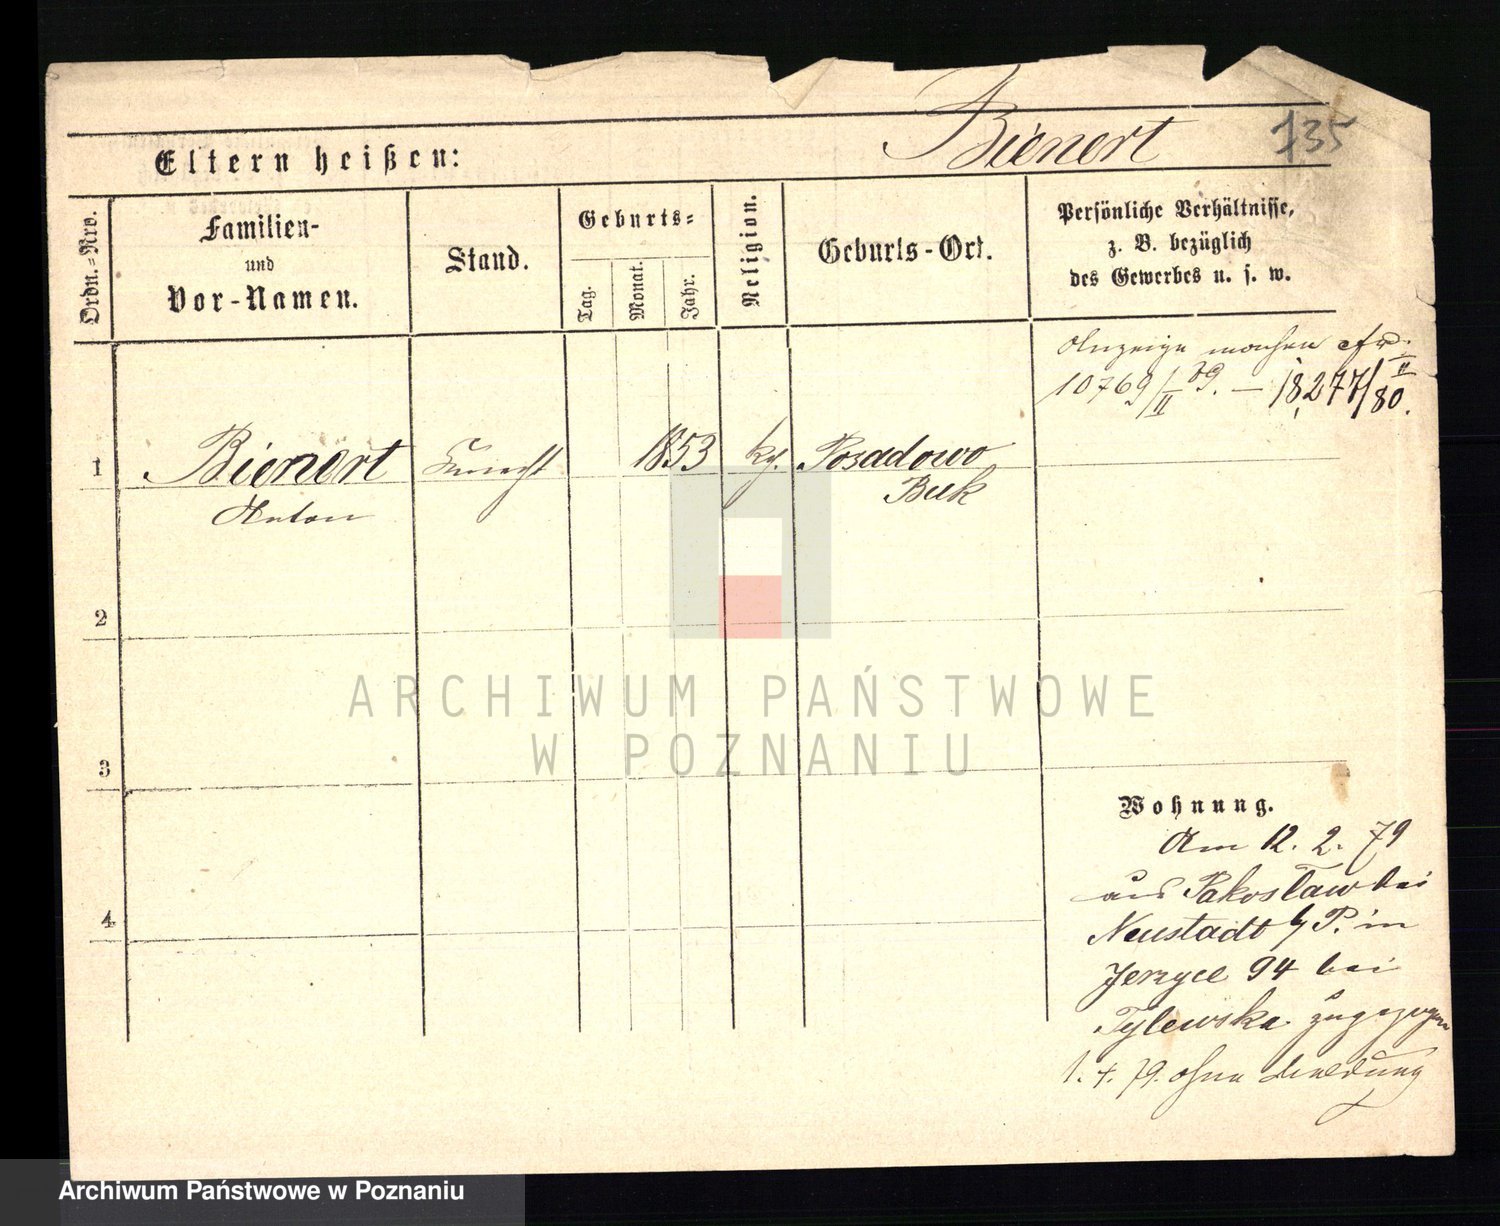 Bienert
135
Eltern heißen:
Ordn.=Nro.
Familien-
und
Vor-Namen.
Stand.
Geburts=
Tag.
Monat.
Jahr.
Religion.
Geburts-Ort.
Persönliche Verhältnisse,
z. B. bezüglich
des Gewerbes u. s. w.
Anzeige machen cfr.
10769/II 79. – 18,277/II 80.
1
Bienert
Anton
Knecht
1853
kg.
Posadowo
Buk
2
3
4
Wohnung.
Am 12. 2. 79
aus Pakosław bei
Neustadt b/P. in
Jerzyce 94 bei
Tylewska zugezogen
1. 4. 79. ohne Meldung
ARCHIWUM PAŃSTWOWE
W POZNANIU
Archiwum Państwowe w Poznaniu